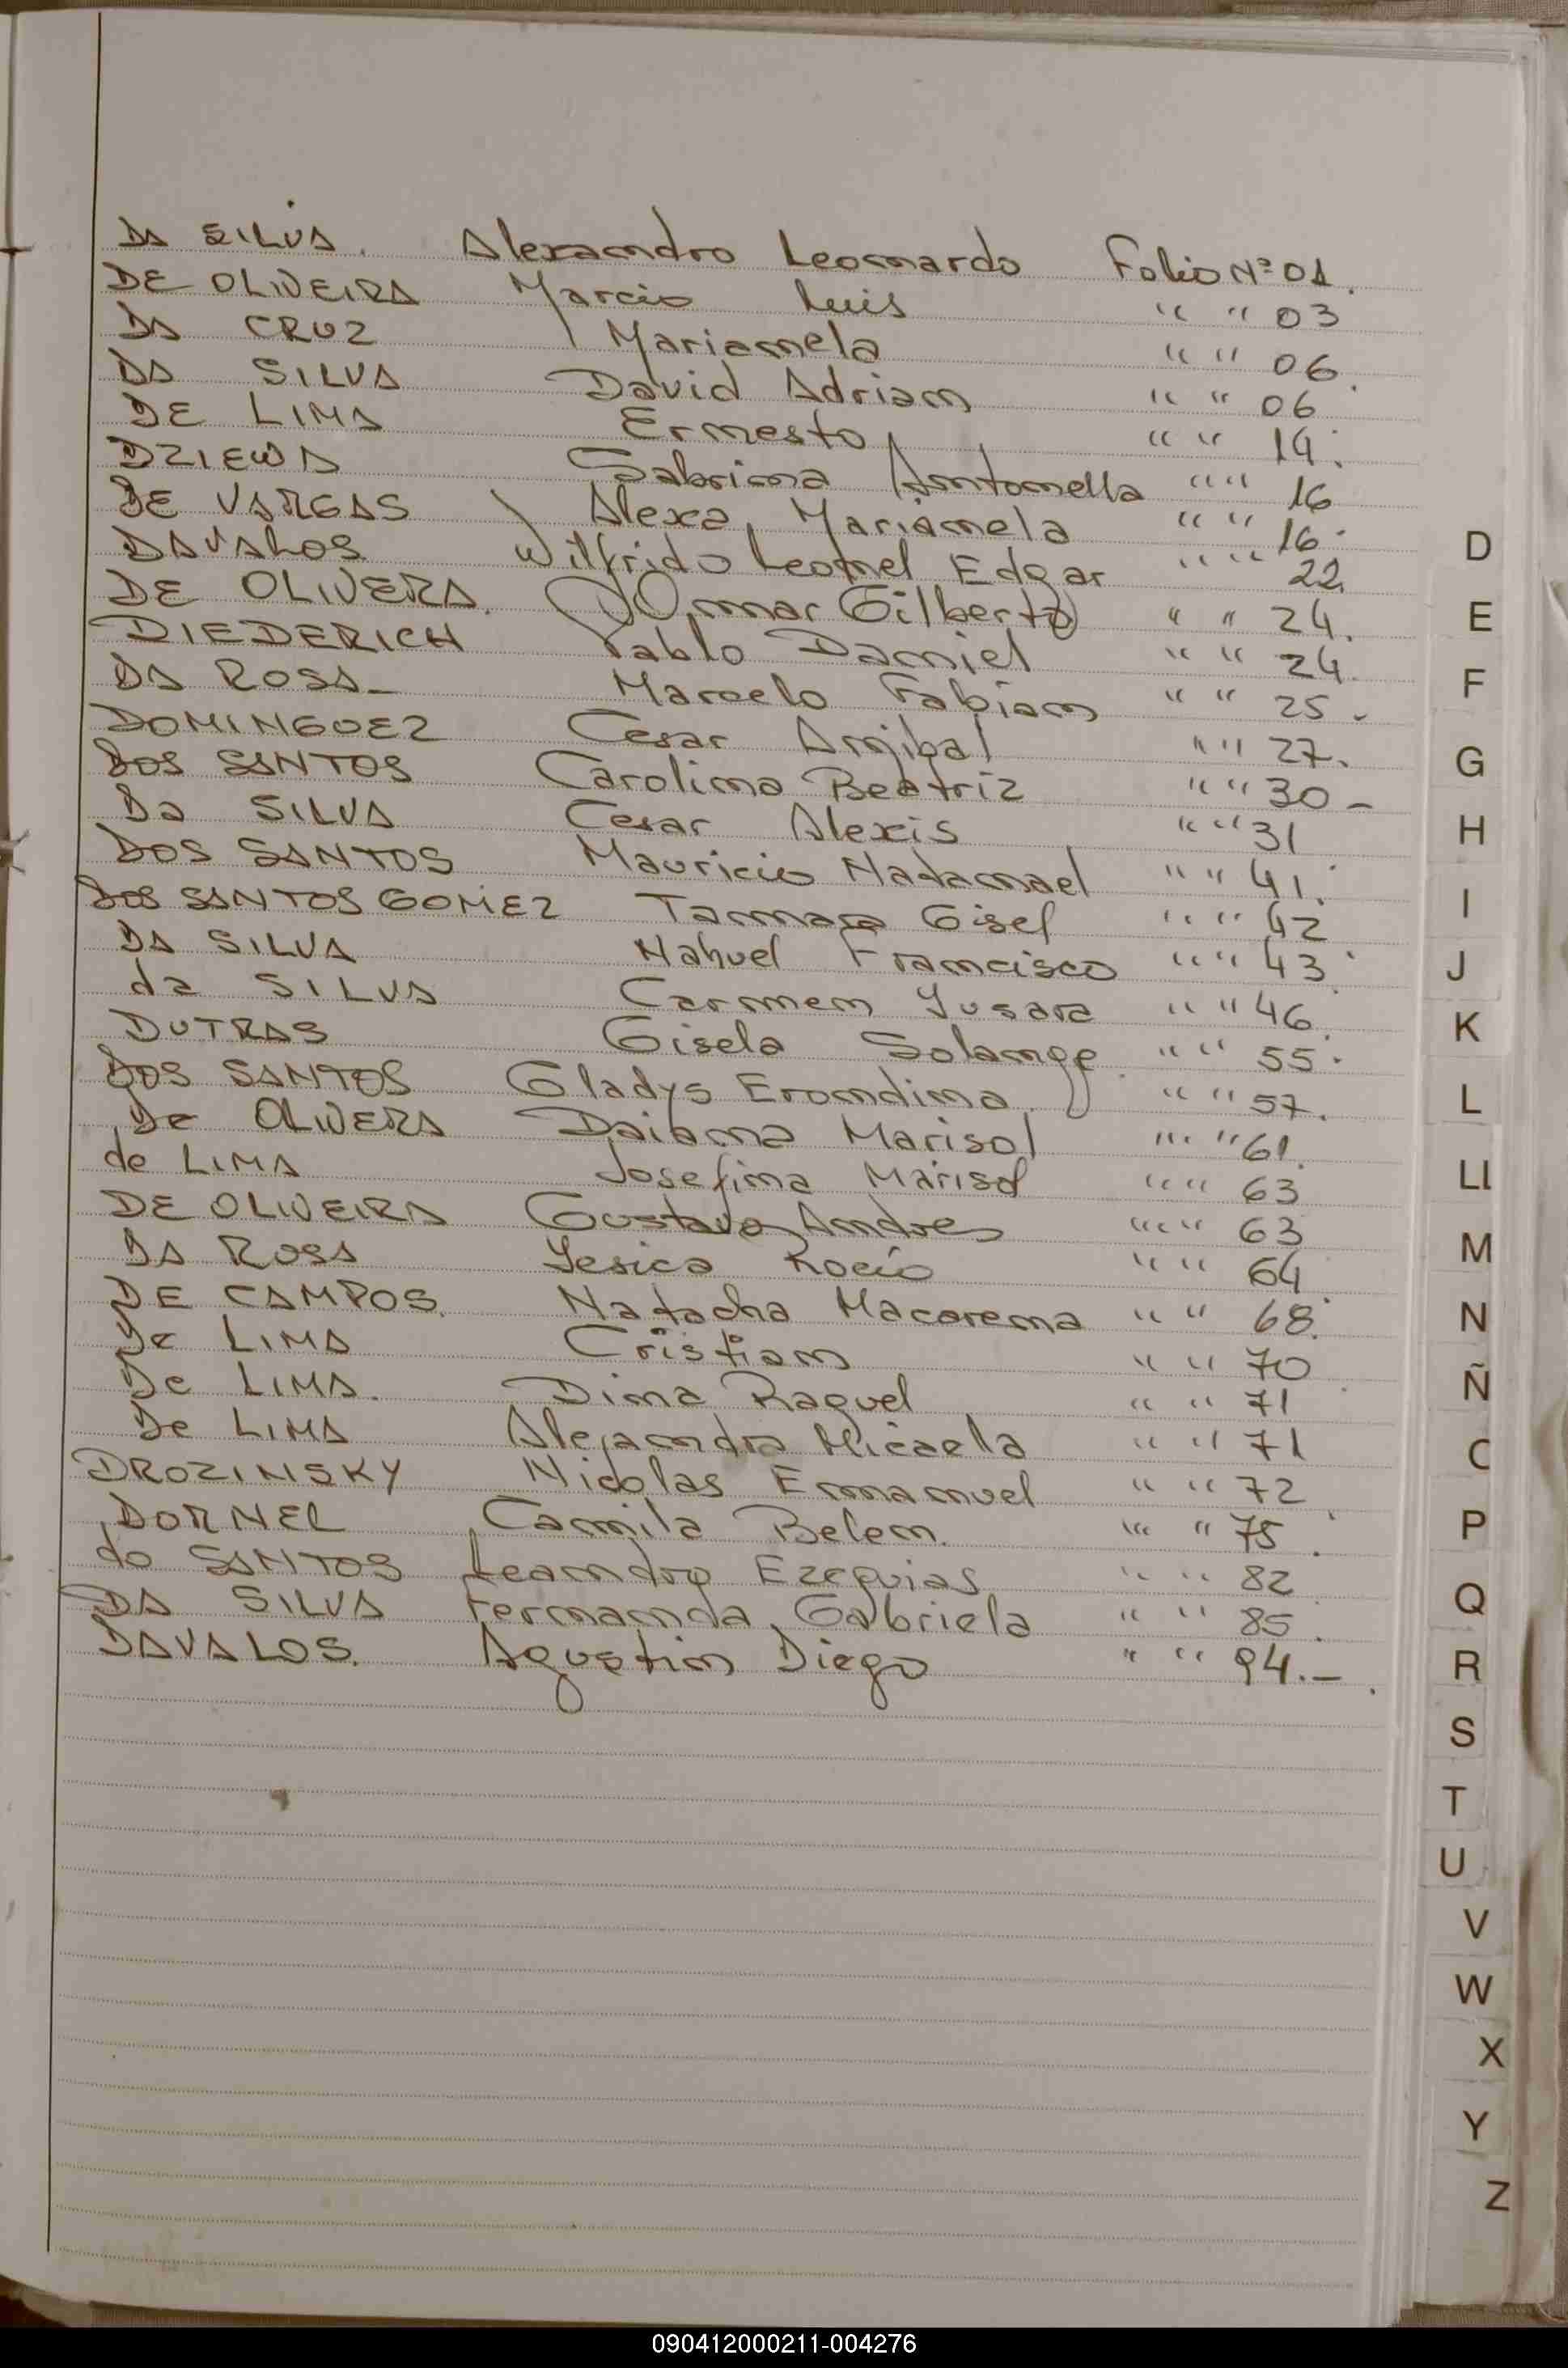 DA SILVA. Alexandro Leonardo Folio Nº 01.
DE OLIVEIRA Marcio Luis " " 03
DA CRUZ Marianela " " 06.
DA SILVA David Adrian " " 06
DE LIMA Ernesto " " 14.
DZIEWA Sabrina Antonella " " 16
DE VARGAS Alexa Marianela " " 16.
DAVALOS Wilfrido Leonel Edgar " " 22.
DE OLIVERA. Omar Gilberto " " 24.
DIEDERICH Pablo Daniel " " 24.
DA ROSA Marcelo Fabian " " 25.
DOMINGUEZ Cesar Anibal " " 27.
DOS SANTOS Carolina Beatriz " " 30-
Da SILVA Cesar Alexis " " 31
DOS SANTOS Mauricio Natanael " " 41.
DOS SANTOS GOMEZ Tamara Gisel " " 42
DA SILVA Nahuel Francisco " " 43
da SILVA Carmen Yusara " " 46
DUTRAS Gisela Solange " " 55.
DOS SANTOS Gladys Erondina " " 57.
De OLIVERA Daiana Marisol " " 61.
de LIMA Josefina Marisol " " 63
DE OLIVEIRA Gustavo Andres " " 63
DA ROSA Yesica Rocio " " 64
DE CAMPOS. Natacha Macarena " " 68.
De LIMA Cristian " " 70
De LIMA. Dina Raquel " " 71
De LIMA Alejandra Micaela " " 71
DROZINSKY Nicolas Emmanuel " " 72
DORNEL Camila Belen. " " 75.
do SANTOS Leandro Ezequias " " 82
DA SILVA Fernanda Gabriela " " 85.
DAVALOS. Agustin Diego " " 94.-
D
E
F
G
H
I
J
K
L
Ll
M
N
Ñ
O
P
Q
R
S
T
U
V
W
X
Y
Z
090412000211-004276